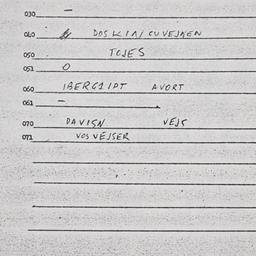 030 —
040 DOSKIAJ CUVEJKEN
050 TOJES
051 O
060 IBERGIIPT AVORT
061 –
070 DAVISN VEJS
071 VOSVEJSER